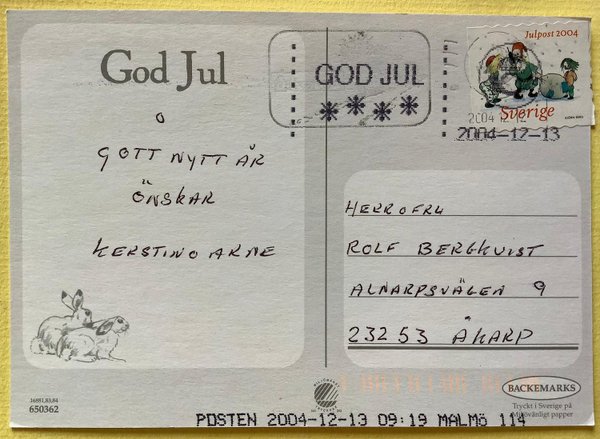 God Jul
o
GOTT NYTT ÅR
ÖNSKAR
KERSTIN O ARNE
16881,83,84
650362
GOD JUL
****
Julpost 2004
Sverige
2004-12-13
HERR O FRU
ROLF BERGKVIST
ALNARPSVÄGEN 9
232 53 ÅKARP
BACKEMARKS
Tryckt i Sverige på
Miljövänligt papper
POSTEN 2004-12-13 09:19 MALMÖ 114